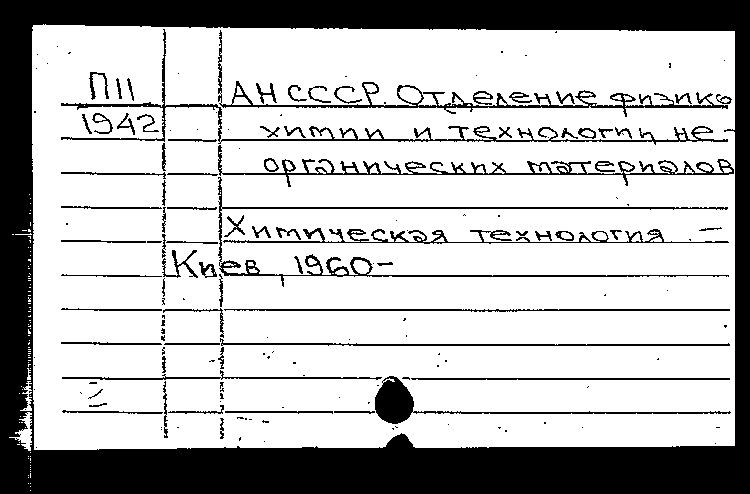 П11
1942
АН СССР. Отделение физико
химии и технологии не-
органических материалов
Химическая технология. -
Киев, 1960-